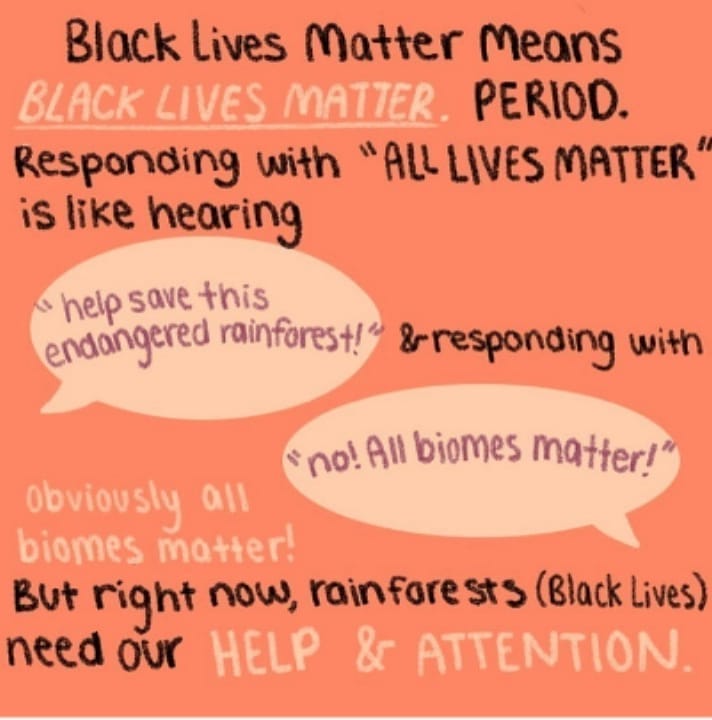 Black Lives Matter Means
BLACK LIVES MATTER. PERIOD.
Responding with "ALL LIVES MATTER"
is like hearing
"help save this
endangered rainforest!" & responding with
"no! All biomes matter!"
obviously all
biomes matter!
But right now, rainforests (Black Lives)
need our HELP & ATTENTION.